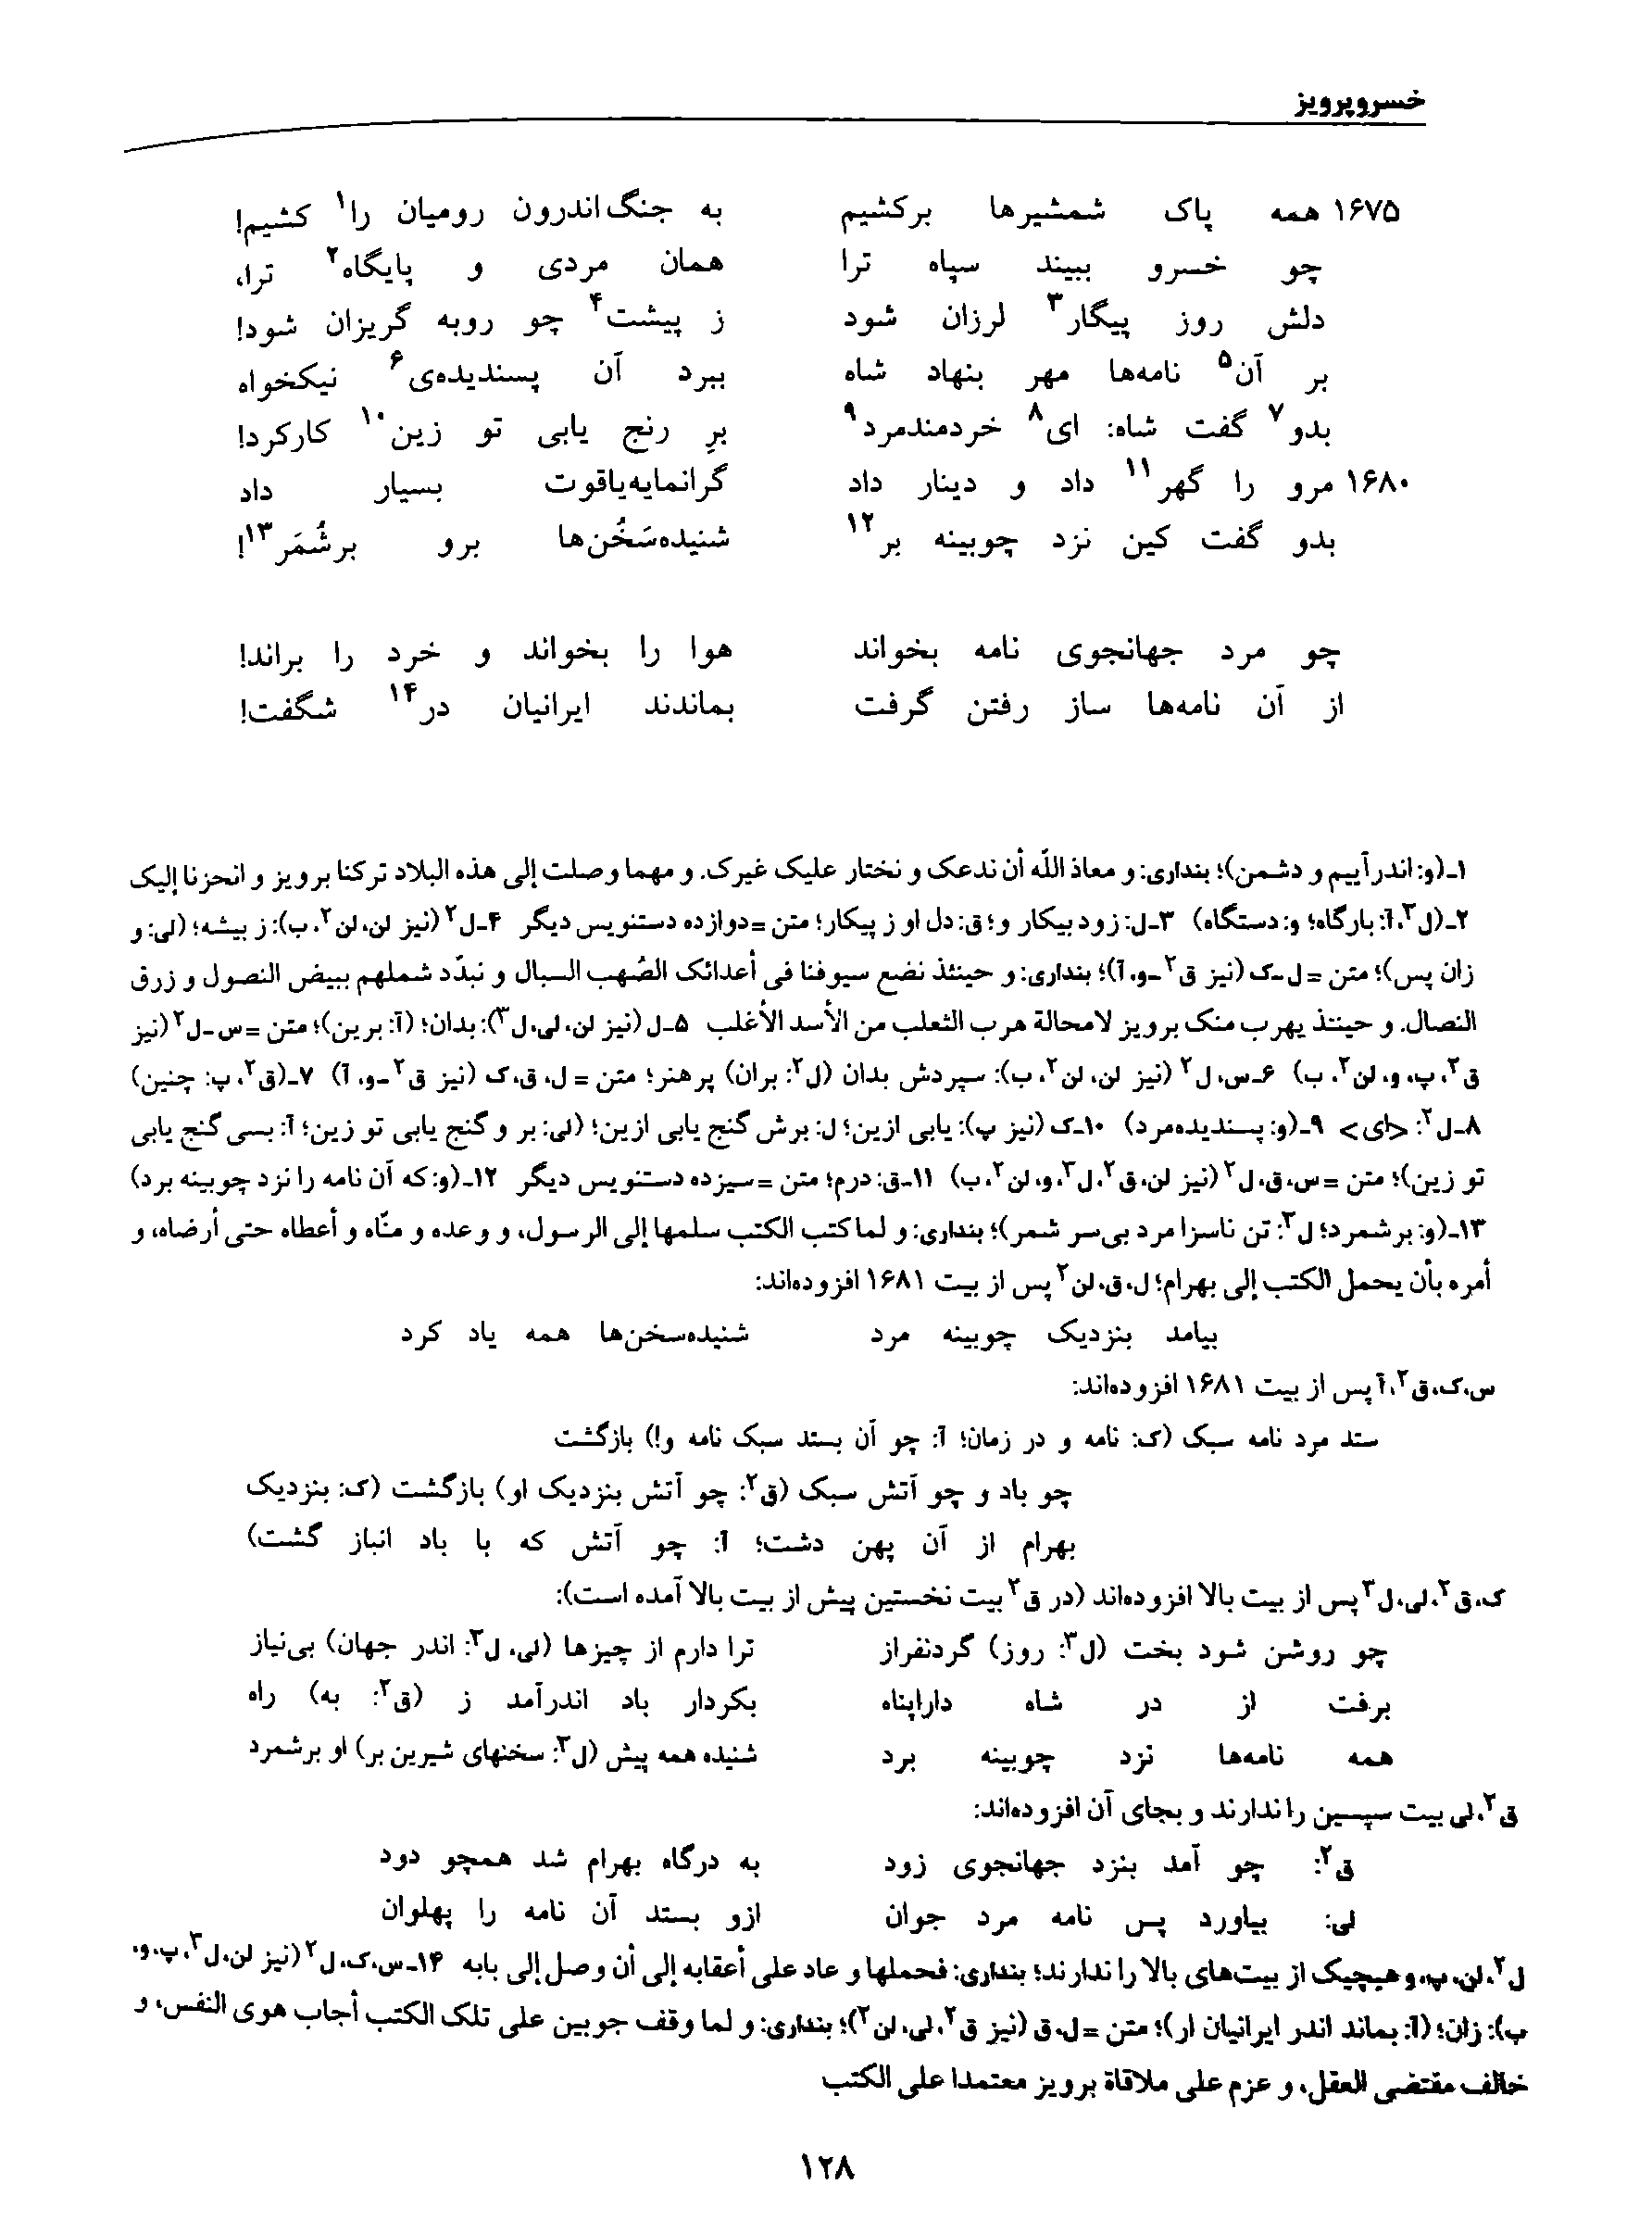 خسروپرویز
۱۶۷۵ همه پاک شمشیرها برکشیم به جنگ‌اندرون رومیان را۱ کشیم!
چو خسرو ببیند سپاه ترا همان مردی و پایگاه۲ ترا،
دلش روز پیگار۳ لرزان شود ز پیشت۴ چو روبه گریزان شود!
بر آن۵ نامه‌ها مهر بنهاد شاه ببرد آن پسندیده‌ی۶ نیکخواه
بدو۷ گفت شاه: ای۸ خردمندمرد۹ برِ رنج یابی تو زین۱۰ کارکرد!
۱۶۸۰ مرو را گهر۱۱ داد و دینار داد گرانمایه‌یاقوت بسیار داد
بدو گفت کین نزد چوبینه بر۱۲ شنیده‌سَخُن‌ها برو برشُمَر۱۳!
چو مرد جهانجوی نامه بخواند هوا را بخواند و خرد را براند!
از آن نامه‌ها ساز رفتن گرفت بماندند ایرانیان در۱۴ شگفت!
۱ـ(و: اندرآییم و دشمن)؛ بنداری: و معاذ اللّه أن ندعک و نختار علیک غیرک. و مهما وصلت إلی هذه البلاد ترکنا برویز و انحزنا إلیک
۲ـ(ل۳، آ: بارگاه؛ و: دستگاه) ۳ـ ل: زود بیکار و؛ ق: دل او ز پیکار؛ متن = دوازده دستنویس دیگر ۴ـ ل۲ (نیز لن، لن۲، ب): ز بیشه؛ (لی: و
زان پس)؛ متن = ل ـ ک (نیز ق۲ ـ و، آ)؛ بنداری: و حینئذ نضع سیوفنا فی أعدائک الصُهب السبال و نبدّد شملهم ببیض النصول و زرق
النصال. و حینئذ یهرب منک برویز لامحالة هرب الثعلب من الأسد الأغلب ۵ـ ل (نیز لن، لی، ل۳): بدان؛ (آ: برین)؛ متن = س ـ ل۲ (نیز
ق۲، پ، و، لن۲، ب) ۶ـ س، ل۲ (نیز لن، لن۲، ب): سپردش بدان (ل۲: بران) پرهنر؛ متن = ل، ق، ک (نیز ق۲ ـ و، آ) ۷ـ(ق۲، پ: چنین)
۸ـ ل۲: <ای> ۹ـ(و: پسندیده‌مرد) ۱۰ـ ک (نیز پ): یابی ازین؛ ل: برش گنج یابی ازین؛ (لی: بر و گنج یابی تو زین؛ آ: بسی گنج یابی
تو زین)؛ متن = س، ق، ل۲ (نیز لن، ق۲، ل۳، و، لن۲، ب) ۱۱ـ ق: درم؛ متن = سیزده دستنویس دیگر ۱۲ـ(و: که آن نامه را نزد چوبینه برد)
۱۳ـ(و: برشمرد؛ ل۳: تن ناسزا مرد بی‌سر شمر)؛ بنداری: و لما کتب الکتب سلمها إلی الرسول، و وعده و منّاه و أعطاه حتی أرضاه، و
أمره بأن یحمل الکتب إلی بهرام؛ ل، ق، لن۲ پس از بیت ۱۶۸۱ افزوده‌اند:
بیامد بنزدیک چوبینه مرد شنیده‌سخن‌ها همه یاد کرد
س، ک، ق۲، آ پس از بیت ۱۶۸۱ افزوده‌اند:
ستد مرد نامه سبک (ک: نامه و در زمان؛ آ: چو آن بستد سبک نامه و!) بازگشت
چو باد و چو آتش سبک (ق۲: چو آتش بنزدیک او) بازگشت (ک: بنزدیک
بهرام از آن پهن دشت؛ آ: چو آتش که با باد انباز گشت)
ک، ق۲، لی، ل۳ پس از بیت بالا افزوده‌اند (در ق۲ بیت نخستین پیش از بیت بالا آمده است):
چو روشن شود بخت (ل۳: روز) گردنفراز ترا دارم از چیزها (لی، ل۳: اندر جهان) بی‌نیاز
برفت از در شاه داراپناه بکردار باد اندرآمد ز (ق۲: به) راه
همه نامه‌ها نزد چوبینه برد شنیده همه پیش (ل۳: سخنهای شیرین بر) او برشمرد
ق۲، لی بیت سپسین را ندارند و بجای آن افزوده‌اند:
ق۲: چو آمد بنزد جهانجوی زود به درگاه بهرام شد همچو دود
لی: بیاورد پس نامه مرد جوان ازو بستد آن نامه را پهلوان
ل۲، لن، پ، و هیچیک از بیت‌های بالا را ندارند؛ بنداری: فحملها و عاد علی أعقابه إلی أن وصل إلی بابه ۱۴ـ س، ک، ل۲ (نیز لن، ل۳، پ، و،
ب): زان؛ (آ: بماند اندر ایرانیان ار)؛ متن = ل، ق (نیز ق۲، لی، لن۲)؛ بنداری: و لما وقف جوبین علی تلک الکتب أجاب هوی النفس، و
خالف مقتضی العقل، و عزم علی ملاقاة برویز معتمدا علی الکتب
۱۲۸